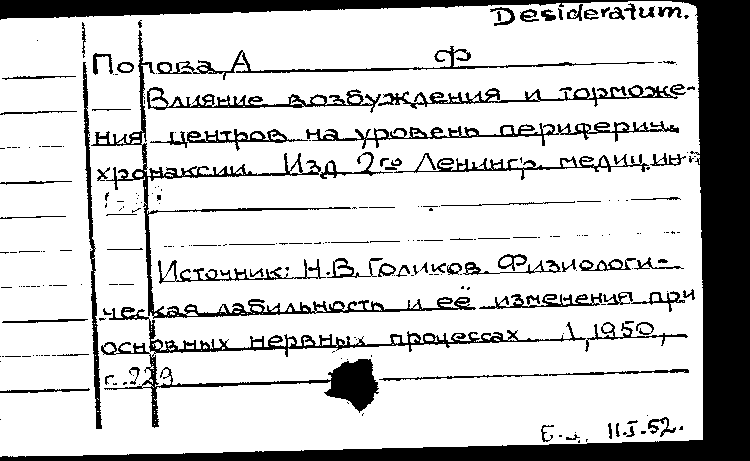 Desideratum.
Попова, А Ф
Влияние возбуждения и торможе-
ния центров на уровень периферич.
хронаксии. Изд. 2го Ленингр. медицин-
Источник: Н.В. Голиков. Физиологи-
ческая лабильность и её изменения при
основных нервных процессах. Л, 1950,
с. 229
11.I.52.